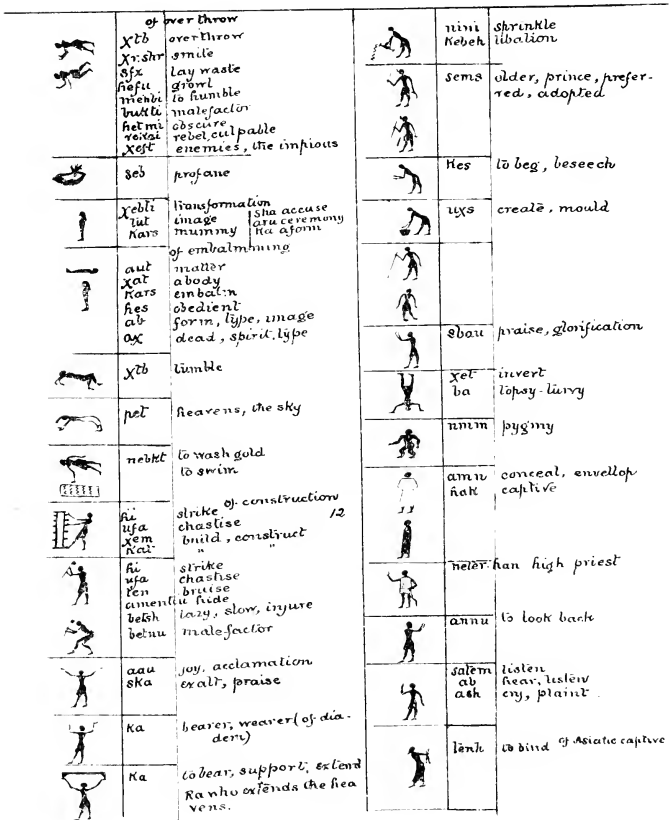 of overthrow
χtb overthrow
χr.shr smite
sfx lay waste
hefu growl
menbi to humble
bukti malefactor
hetmi obscure
rebel, culpable
χest enemies, the impious
seb profane
χebti transformation
tut image
Kars mummy
sha accuse
aru ceremony
Ka a form
of embalmming
aut matter
χat a body
Kars embalm
hes obedient
ab form, type, image
aχ dead, spirit, type
χtb tumble
pet heavens, the sky
nebkt to wash gold
to swim
of construction
hi strike 12
ufa chastise
χem build, construct
Kat " "
hi strike
ufa chastise
ten bruise
amentiu hide
betsh lazy, slow, injure
betnu malefactor
aau joy, acclamation
ska exalt, praise
Ka bearer, wearer (of dia-
dem)
Ka to bear, support, extend
Ra who extends the hea
vens.
nini shrinkle
Kebeh libation
sems older, prince, prefer-
red, adopted
Hes to beg, beseech
uxs create, mould
sbau praise, glorification
χet invert
ba topsy-turvy
nnm pygmy
amn conceal, envellop
hak captive
neter han high priest
annu to look back
satem listen
ab hear, listen
ash cry, plaint.
tenh to bind of Asiatic captive